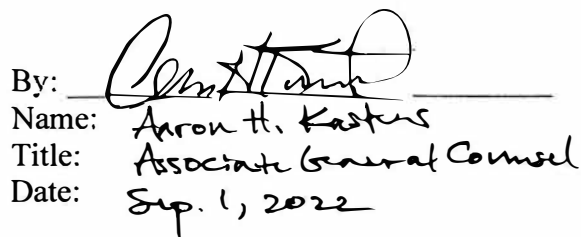 By:
Name: Aaron H. Kastens
Title: Associate General Counsel
Date: Sep. 1, 2022